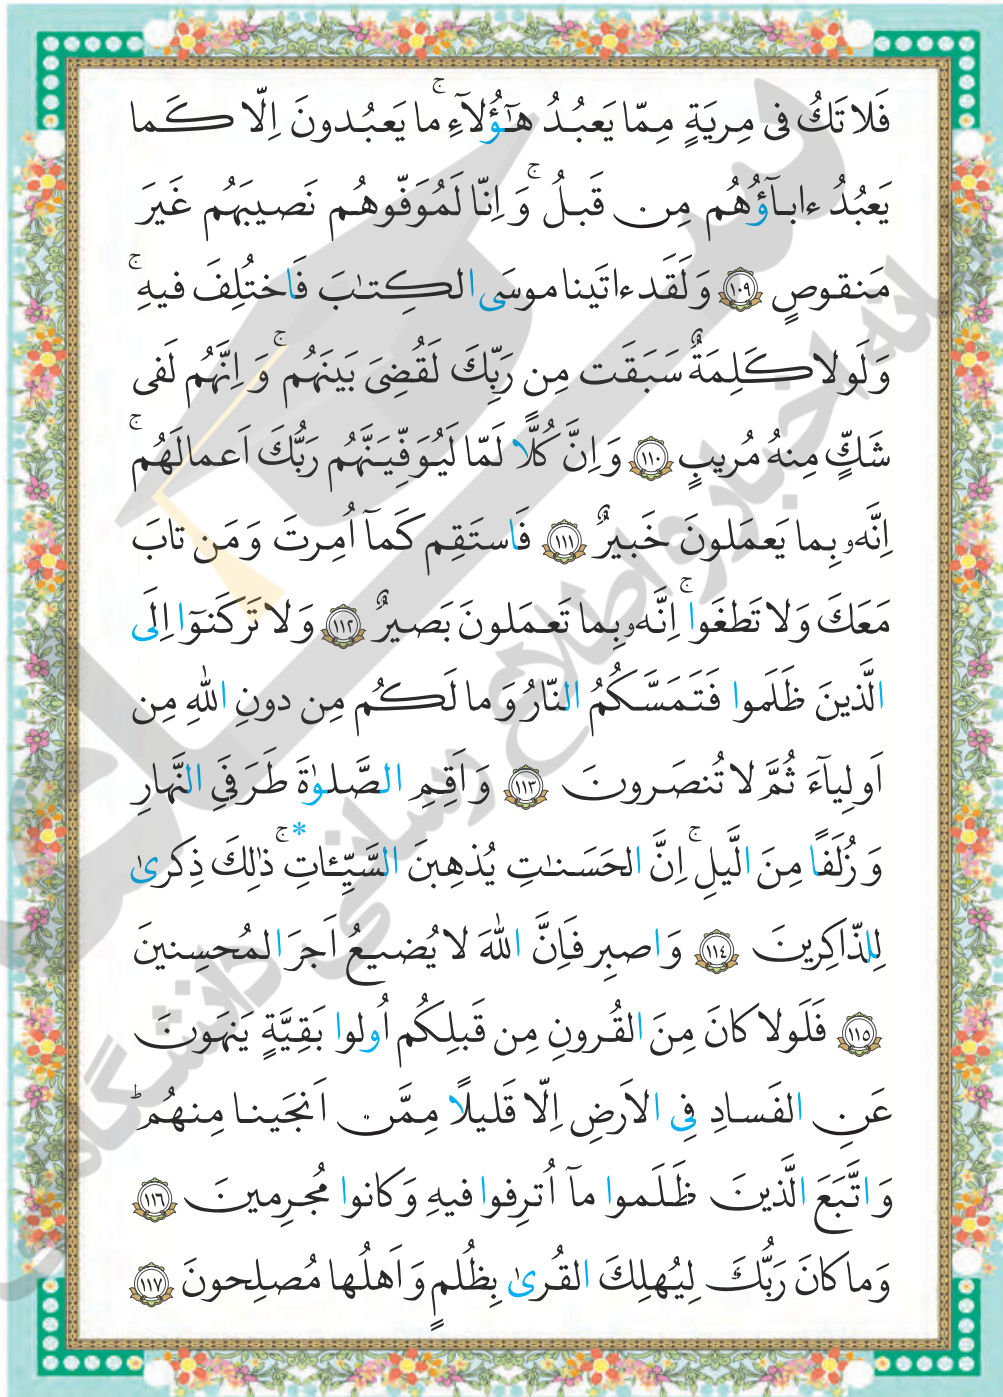 فَلا تَكُ فى مِريَةٍ مِمّا يَعبُدُ هٰٓؤُلآءِ ۚ ما يَعبُدونَ اِلّا كَما
يَعبُدُ ءابآؤُهُم مِن قَبلُ ۚ وَ اِنّا لَمُوَفّوهُم نَصيبَهُم غَيرَ
مَنقوصٍ ﴿١٠٩﴾ وَ لَقَد ءاتَينا موسَى الكِتٰبَ فَاختُلِفَ فيهِ ۚ
وَ لَولا كَلِمَةٌ سَبَقَت مِن رَبِّكَ لَقُضِىَ بَينَهُم ۚ وَ اِنَّهُم لَفى
شَكٍّ مِنهُ مُريبٍ ﴿١١٠﴾ وَ اِنَّ كُلًّا لَمّا لَيُوَفِّيَنَّهُم رَبُّكَ اَعمالَهُم ۚ
اِنَّهۥ بِما يَعمَلونَ خَبيرٌ ﴿١١١﴾ فَاستَقِم كَمآ اُمِرتَ وَ مَن تابَ
مَعَكَ وَ لا تَطغَوا ۚ اِنَّهۥ بِما تَعمَلونَ بَصيرٌ ﴿١١٢﴾ وَ لا تَركَنوٓا اِلَى
الَّذينَ ظَلَموا فَتَمَسَّكُمُ النّارُ وَ ما لَكُم مِن دونِ اللّٰهِ مِن
اَولِيآءَ ثُمَّ لا تُنصَرونَ ﴿١١٣﴾ وَ اَقِمِ الصَّلوٰةَ طَرَفَىِ النَّهارِ
وَ زُلَفًا مِنَ الَّيلِ ۚ اِنَّ الحَسَنٰتِ يُذهِبنَ السَّيِّـٔاتِ ۚ* ذٰلِكَ ذِكرىٰ
لِلذّاكِرينَ ﴿١١٤﴾ وَ اصبِر فَاِنَّ اللّٰهَ لا يُضيعُ اَجرَ المُحسِنينَ
﴿١١٥﴾ فَلَولا كانَ مِنَ القُرونِ مِن قَبلِكُم اُولوا بَقِيَّةٍ يَنهَونَ
عَنِ الفَسادِ فِى الاَرضِ اِلّا قَليلًا مِمَّن اَنجَينا مِنهُم ۗ
وَ اتَّبَعَ الَّذينَ ظَلَموا مآ اُترِفوا فيهِ وَ كانوا مُجرِمينَ ﴿١١٦﴾
وَ ما كانَ رَبُّكَ لِيُهلِكَ القُرىٰ بِظُلمٍ وَ اَهلُها مُصلِحونَ ﴿١١٧﴾